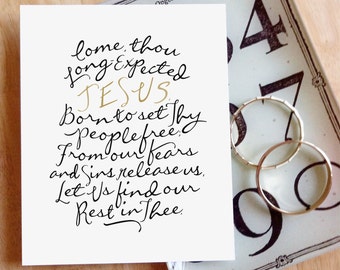 Come, thou
Long Expected
JESUS
Born to set Thy
People free;
From our Fears
and Sins release us,
Let Us find our
Rest in Thee.
4
7
2
9